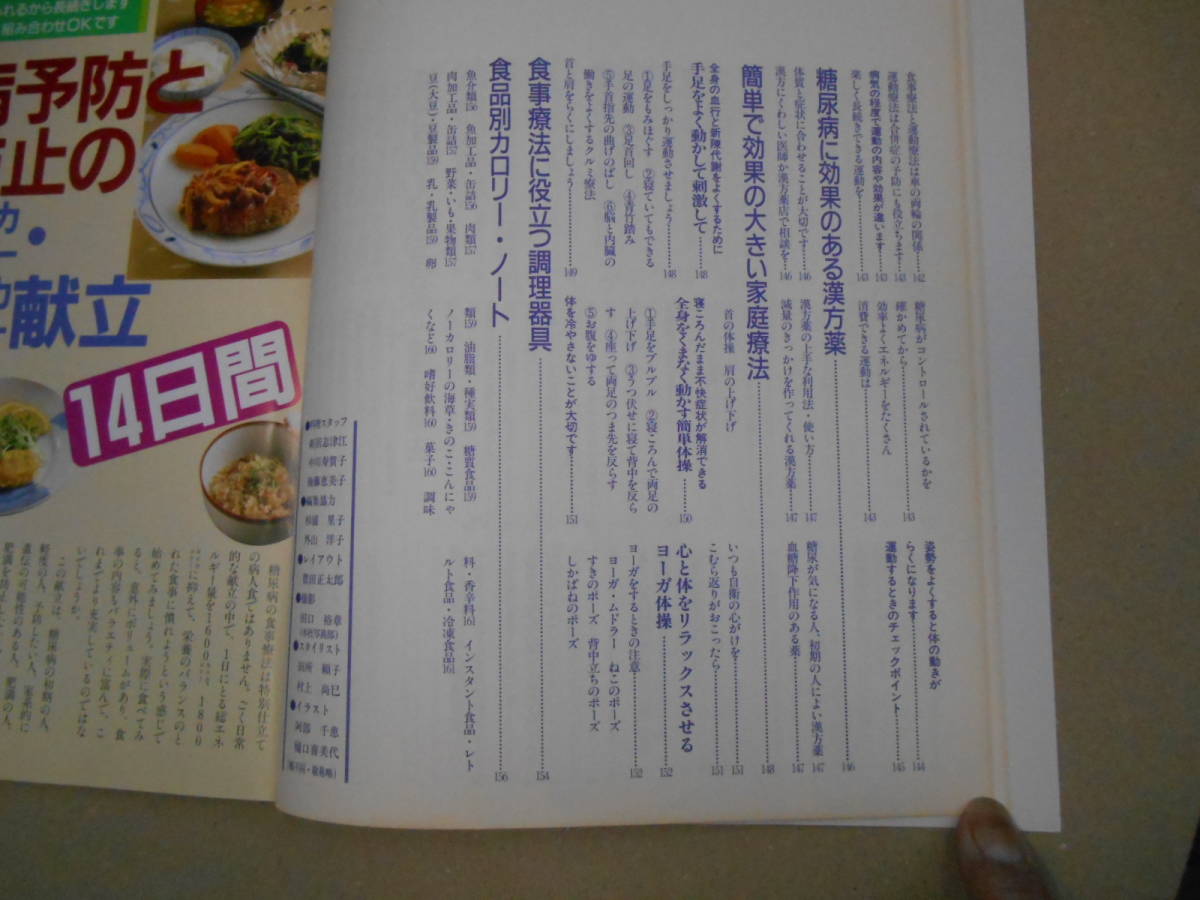 食事療法と運動療法は車の両輪の関係……142
運動療法は合併症の予防にも役立ちます……143
病気の程度で運動の内容や効果が違います……143
楽しく長続きできる運動を……143
糖尿病がコントロールされているかを
確かめてから……143
効率よくエネルギーをたくさん
消費できる運動は……143
姿勢をよくすると体の動きが
らくになります……144
運動するときのチェックポイント……145
糖尿病に効果のある漢方薬……146
体質と症状に合わせることが大切です……146
漢方にくわしい医師か漢方薬店で相談を……146
漢方薬の上手な利用法・使い方……147
減量のきっかけを作ってくれる漢方薬……147
糖尿が気になる人、初期の人によい漢方薬……147
血糖降下作用のある薬……147
簡単で効果の大きい家庭療法……148
全身の血行と新陳代謝をよくするために
手足をよく動かして刺激して……148
手足をしっかり運動させましょう……148
①足をもみほぐす ②寝ていてもできる
足の運動 ③足首回し ④青竹踏み
⑤手首指先の曲げのばし ⑥脳と内臓の
働きをよくするクルミ療法
首と肩をらくにしましょう……149
首の体操 肩の上げ下げ
寝ころんだまま不快症状が解消できる
全身をくまなく動かす簡単体操……150
①手足をブルブル ②寝ころんで両足の
上げ下げ ③うつ伏せに寝て背中を反ら
す ④座って両足のつま先を反らす
⑤お腹をゆする
体を冷やさないことが大切です……151
いつも自衛の心がけを……151
こむら返りがおこったら……151
心と体をリラックスさせる
ヨーガ体操……152
ヨーガをするときの注意……152
ヨーガ・ムドラー ねこのポーズ
すきのポーズ 背中立ちのポーズ
しかばねのポーズ
食事療法に役立つ調理器具……154
食品別カロリー・ノート……156
魚介類156 魚加工品・缶詰156 肉類157
肉加工品・缶詰157 野菜・いも・果物類157
豆(大豆)・豆製品159 乳・乳製品159 卵
類159 油脂類・種実類159 糖質食品159
ノーカロリーの海草・きのこ・こんにゃ
くなど160 嗜好飲料160 菓子160 調味
料・香辛料161 インスタント食品・レト
ルト食品・冷凍食品161
●料理スタッフ
●編集協力
●レイアウト
●撮影
●スタイリスト
●イラスト
れるから長続きします
組み合わせOKです
病予防と
止の
献立
14日間
糖尿病の食事療法は特別仕立て
の病人食ではありません。ごく日常
的な献立の中で、1日にとる総エネ
ルギー量を1600〜1800
に抑えて、栄養のバランスのと
れた食事に慣れようという感じで
始めてみましょう。実際に食べてみ
ると、意外にボリュームがあり、食
事の内容もバラエティに富んで、こ
れまでより充実しているのではな
いでしょうか。
この献立は、糖尿病の初期の人、
軽度の人、予防したい人、家系的に
遺伝の可能性のある人、肥満の人、